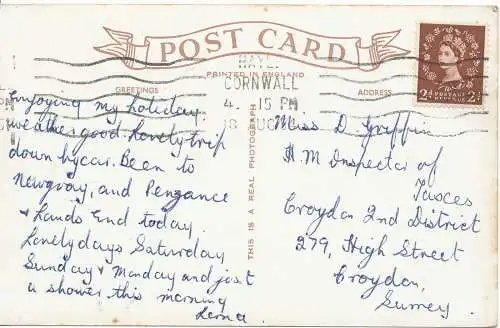 POST CARD
PRINTED IN ENGLAND
GREETINGS
ADDRESS
HAYLE
CORNWALL
4. 15 PM
18 AUG
POSTAGE
REVENUE
2d 2d
THIS IS A REAL PHOTOGRAPH
Enjoying my holiday.
weather good. Lovely trip
down by car. Been to
Newquay, and Penzance
& Lands End today.
Lovely days Saturday
Sunday & Monday and just
a shower this morning
Lerna
Miss D. Griffin
H M Inspector of
Taxes
Croydon 2nd District
279, High Street
Croydon,
Surrey.